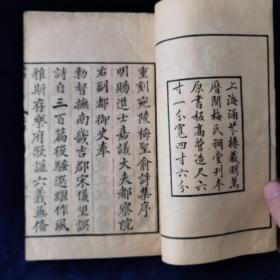 上海涵芬樓藏明萬
曆閒梅氏祠堂刊本
原書板高營造尺六
寸一分寬四寸六分
重刻宛陵梅聖俞詩集序
明賜進士嘉議大夫都察院
右副都御史奉
勅督撫南畿吉郡宋儀望譔
詩自三百篇後騷選繼作風
雅斯存樂府歌謠六義無備